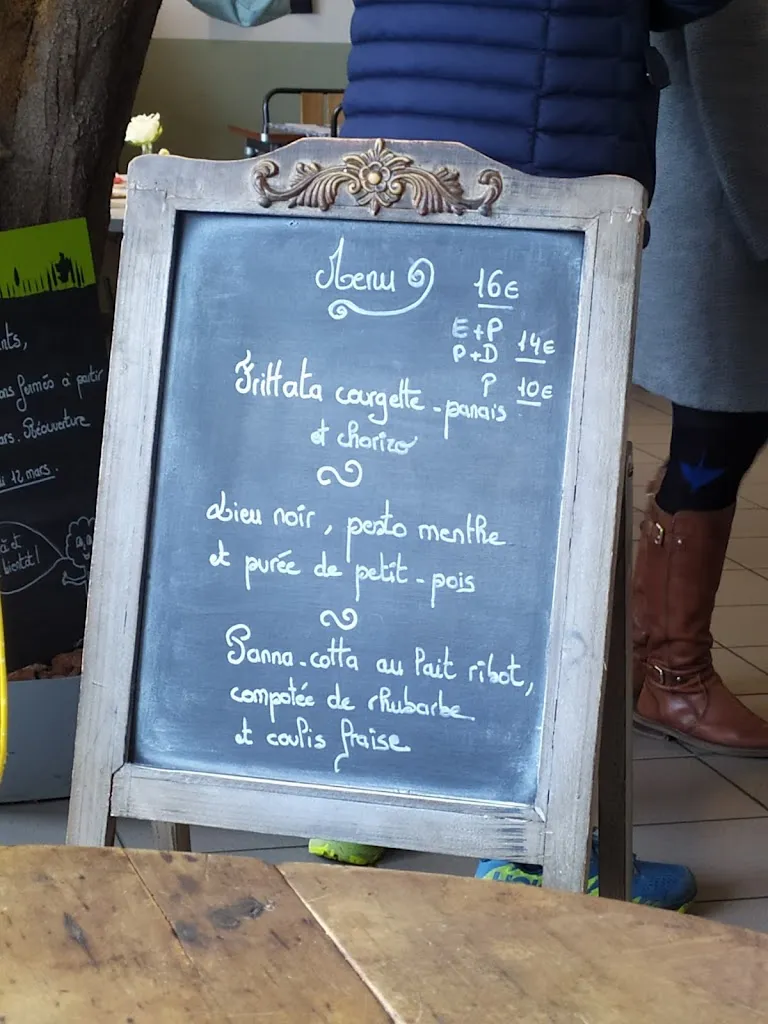 Menu 16€
E+P
P+D 14€
P 10€
Frittata courgette-panais
et chorizo
Lieu noir, pesto menthe
et purée de petit-pois
Panna-cotta au lait ribot,
compotée de rhubarbe
et coulis fraise
fermés à partir
Réouverture
12 mars.